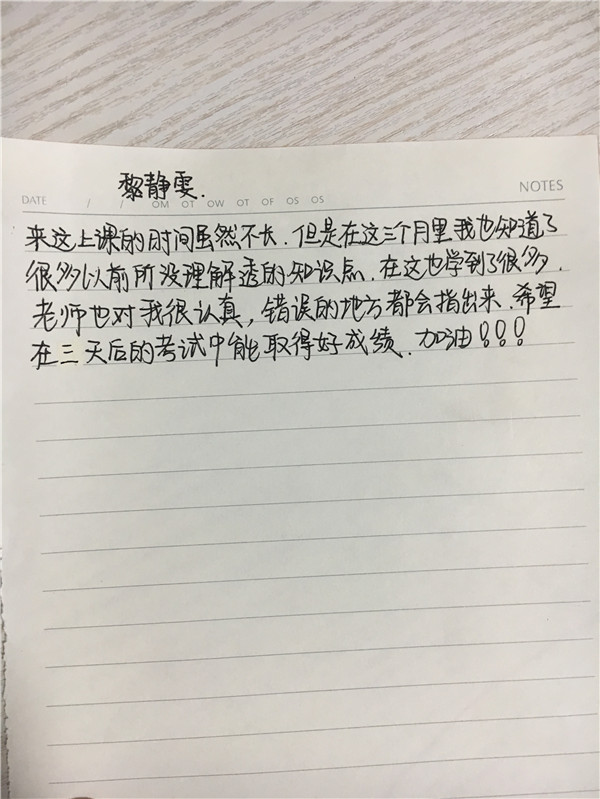 黎静雯.
NOTES
DATE / / OM OT OW OT OF OS OS
来这上课的时间虽然不长.但是在这三个月里我也知道了
很多以前所没理解透的知识点.在这也学到了很多.
老师也对我很认真,错误的地方都会指出来.希望
在三天后的考试中能取得好成绩.加油!!!